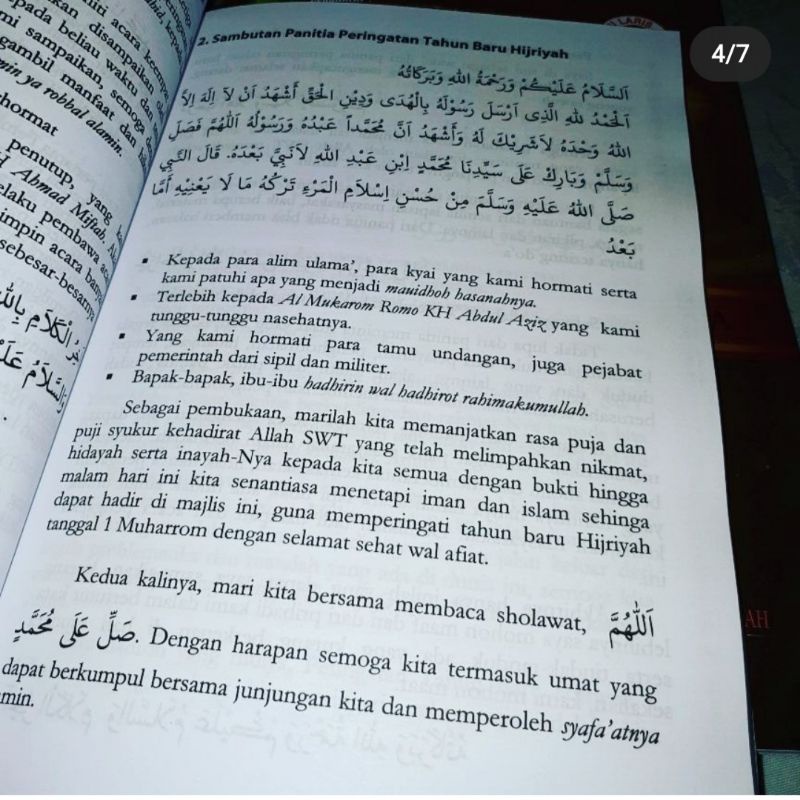 4/7
iti acara
pada beliau waktu dan
mi sampaikan, semoga
gambil manfaat dan
min ya robbal alamin.
hormat
penutup, yang
H Ahmad Miftah.
elaku pembawa
impin acara
sebesar-besarnya
2. Sambutan Panitia Peringatan Tahun Baru Hijriyah
اَلسَّلَامُ عَلَيْكُمْ وَرَحْمَةُ اللهِ وَبَرَكَاتُهُ
اَلْحَمْدُ للهِ الَّذِى اَرْسَلَ رَسُوْلَهُ بِالْهُدَى وَدِيْنِ الْحَقِّ أَشْهَدُ اَنْ لَا اِلَهَ اِلاَّ
اللهُ وَحْدَهُ لَاشَرِيْكَ لَهُ وَأَشْهَدُ اَنَّ مُحَمَّداً عَبْدُهُ وَرَسُوْلُهُ اَللَّهُمَّ فَصَلِّ
وَسَلِّمْ وَبَارِكْ عَلَى سَيِّدِنَا مُحَمَّدٍ اِبْنِ عَبْدِ اللهِ لَانَبِيَّ بَعْدَهُ. قَالَ النَّبِي
صَلَّى اللهُ عَلَيْهِ وَسَلَّمَ مِنْ حُسْنِ اِسْلَامِ الْمَرْءِ تَرْكُهُ مَا لَا يَعْنِيْهِ أَمَّا
بَعْدُ
▪ Kepada para alim ulama', para kyai yang kami hormati serta
kami patuhi apa yang menjadi mauidhoh hasanahnya.
▪ Terlebih kepada Al Mukarom Romo KH Abdul Aziz yang kami
tunggu-tunggu nasehatnya.
▪ Yang kami hormati para tamu undangan, juga pejabat
pemerintah dari sipil dan militer.
▪ Bapak-bapak, ibu-ibu hadhirin wal hadhirot rahimakumullah.
Sebagai pembukaan, marilah kita memanjatkan rasa puja dan
puji syukur kehadirat Allah SWT yang telah melimpahkan nikmat,
hidayah serta inayah-Nya kepada kita semua dengan bukti hingga
malam hari ini kita senantiasa menetapi iman dan islam sehinga
dapat hadir di majlis ini, guna memperingati tahun baru Hijriyah
tanggal 1 Muharrom dengan selamat sehat wal afiat.
Kedua kalinya, mari kita bersama membaca sholawat, اَللَّهُمَّ
صَلِّ عَلَى مُحَمَّدٍ. Dengan harapan semoga kita termasuk umat yang
dapat berkumpul bersama junjungan kita dan memperoleh syafa'atnya
min.